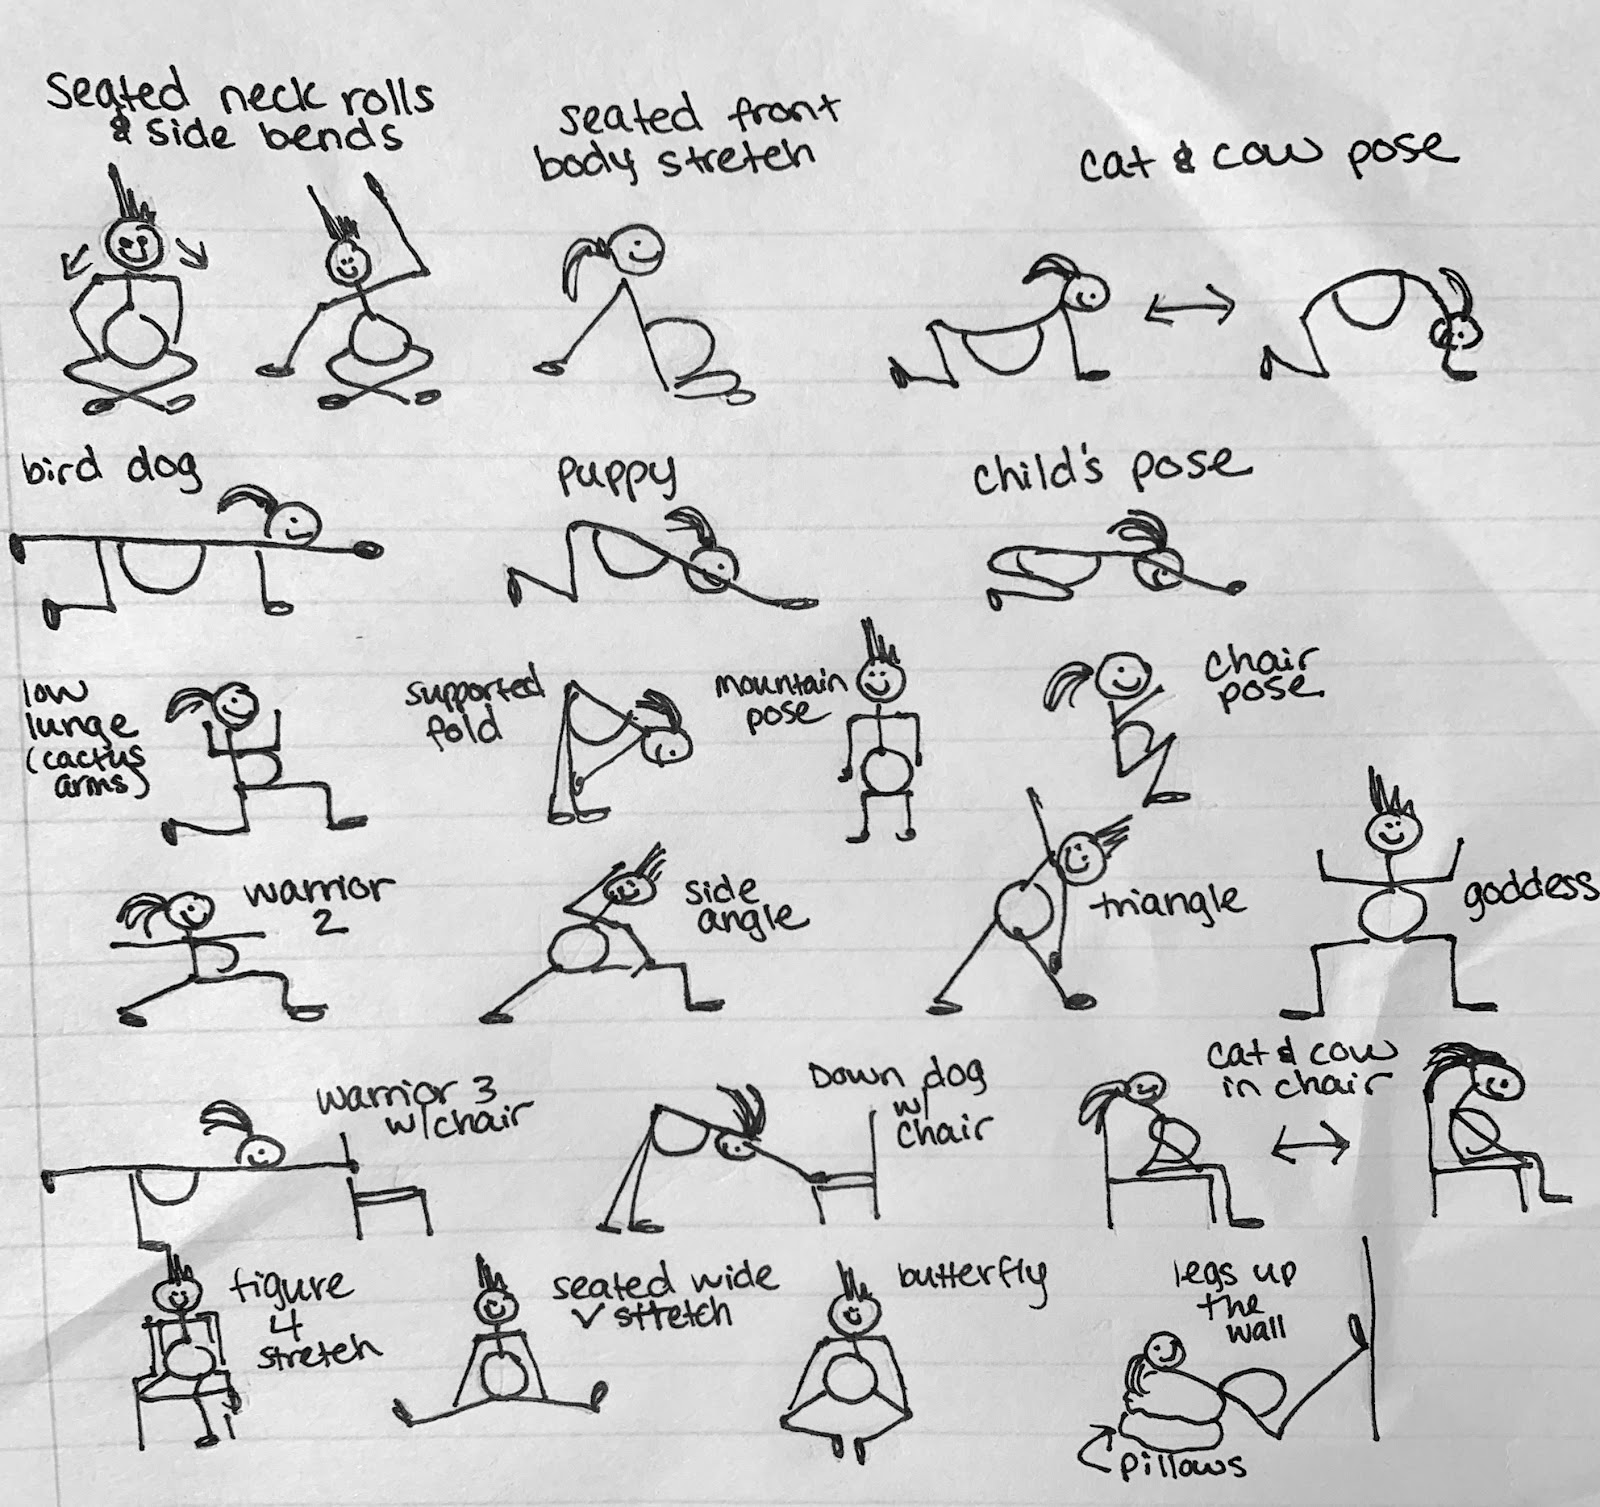 Seated neck rolls
& side bends
seated front
body stretch
cat & cow pose
bird dog
puppy
child's pose
low
lunge
(cactus
arms)
supported
fold
mountain
pose
chair
pose
warrior
2
side
angle
triangle
goddess
warrior 3
w/chair
Down dog
w/
chair
cat & cow
in chair
figure
4
stretch
seated wide
V stretch
butterfly
legs up
the
wall
pillows